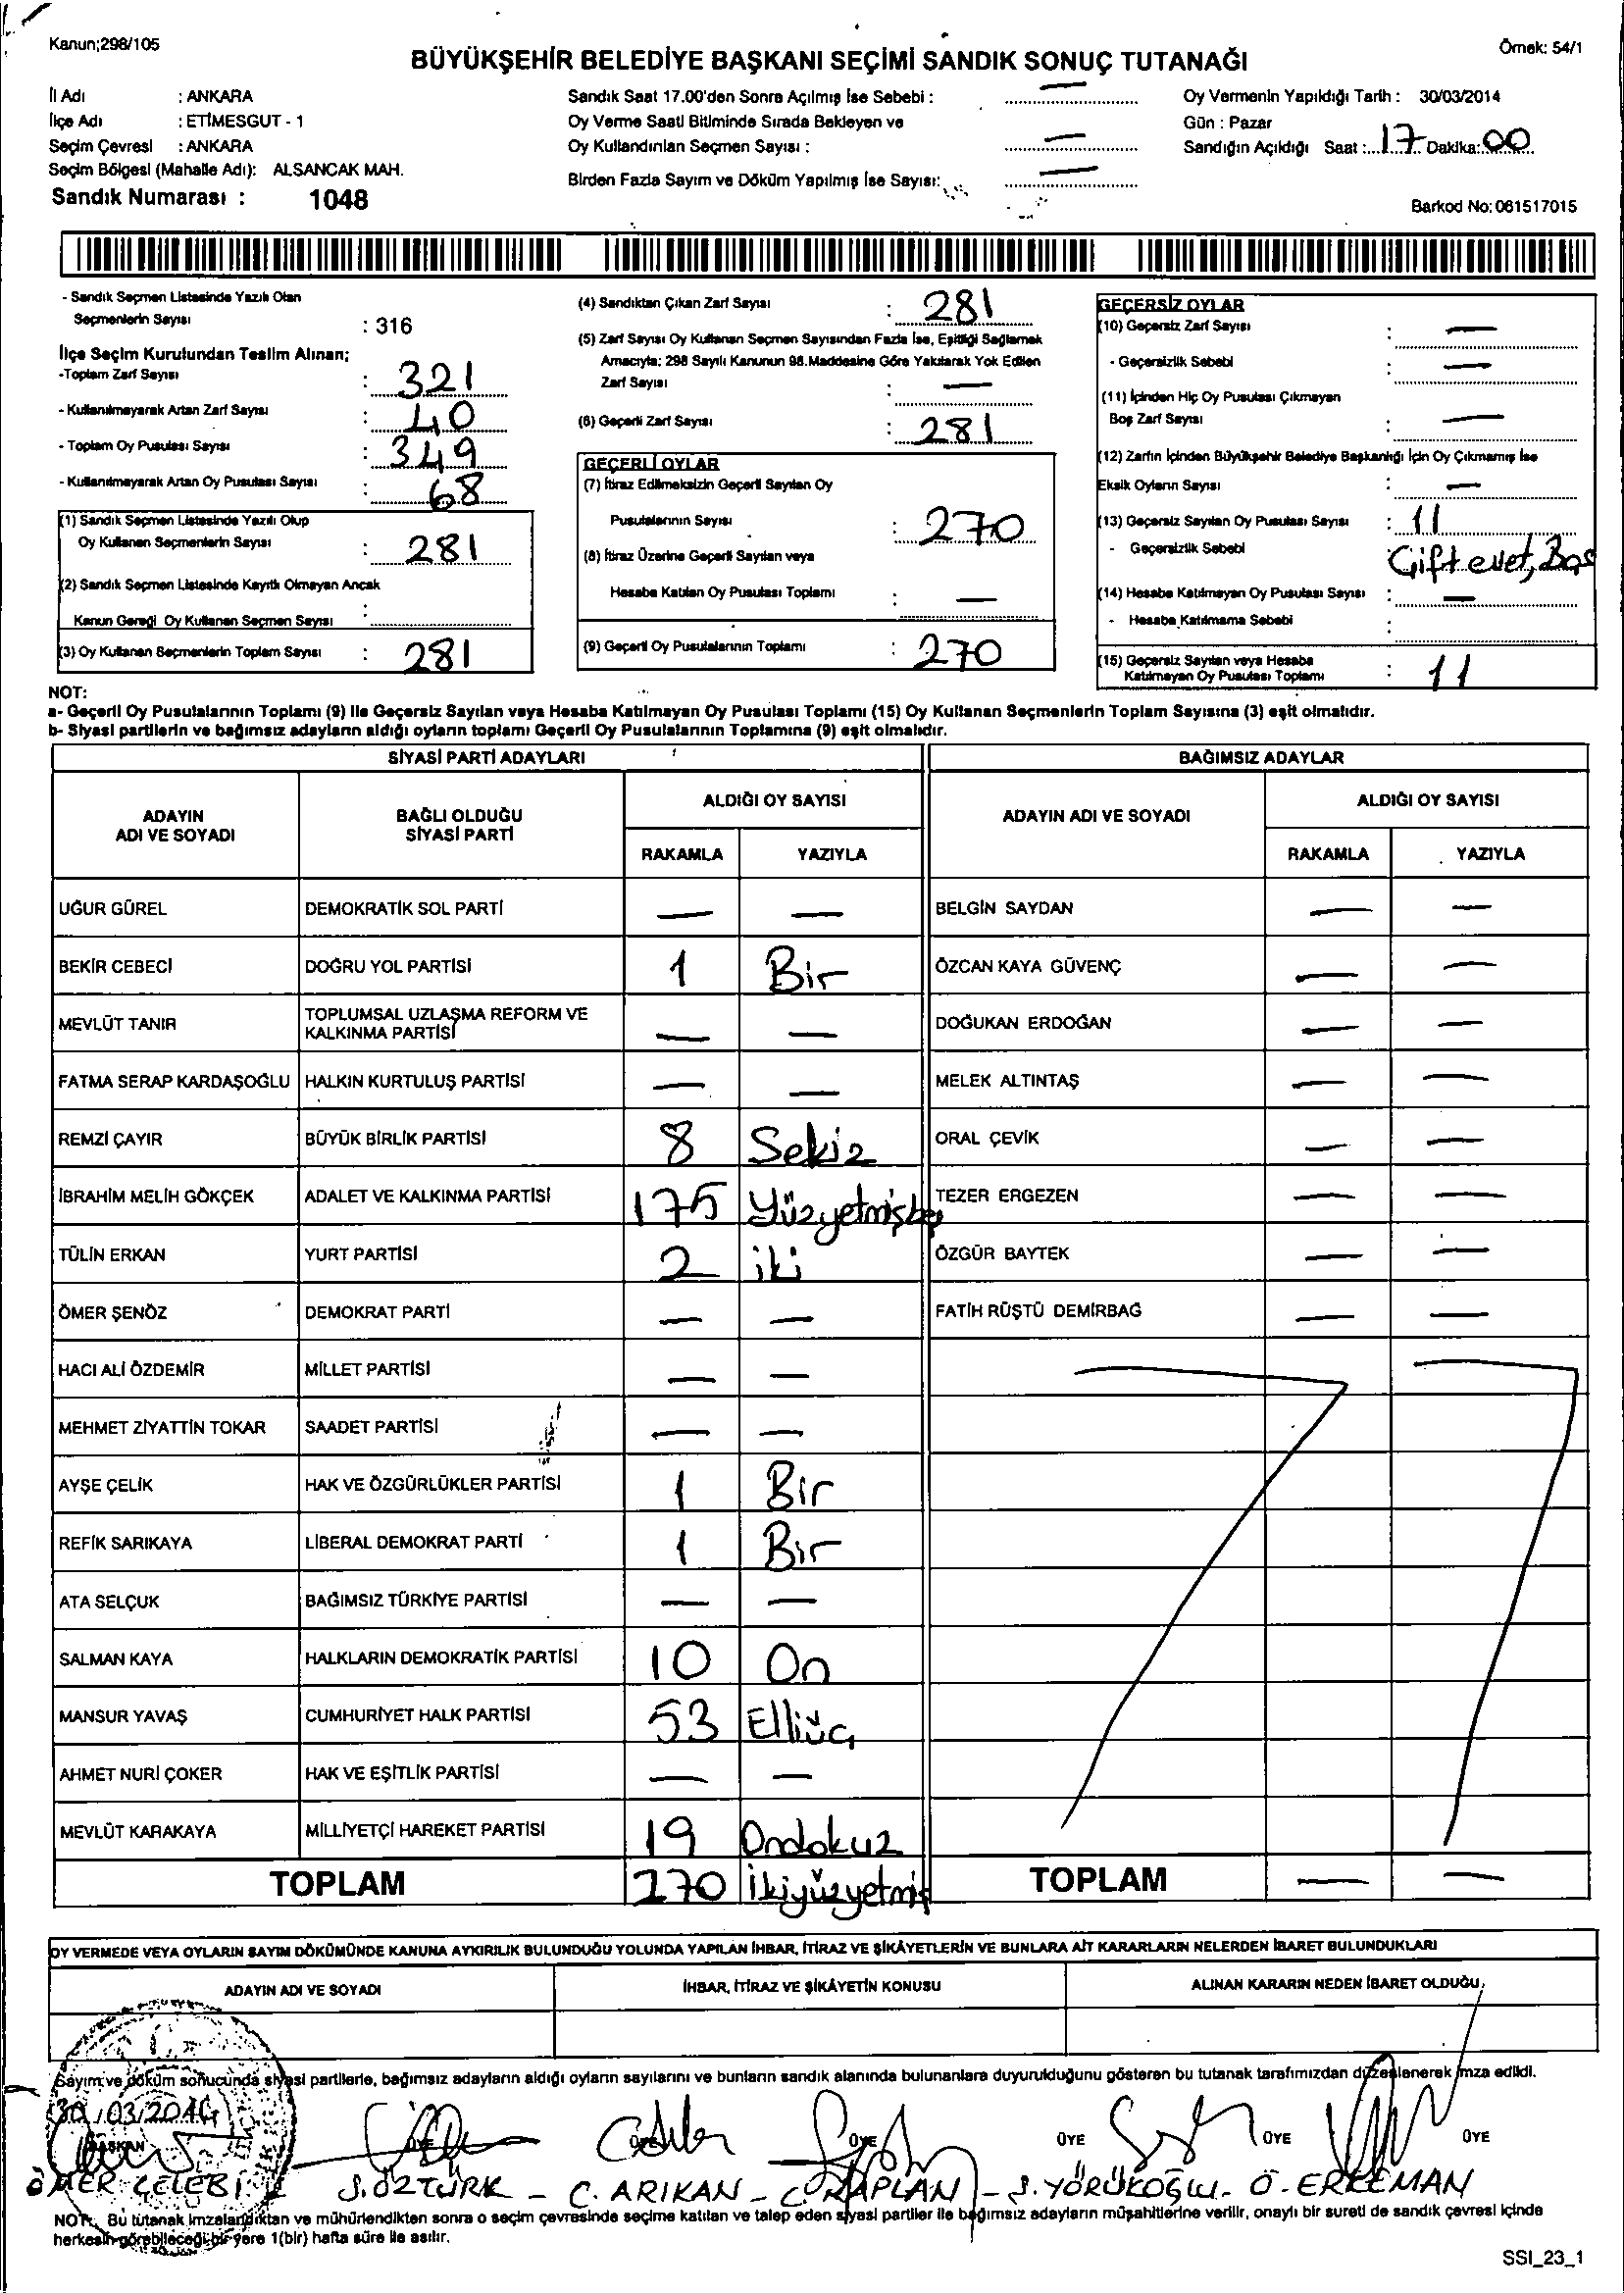 Kanun;298/105
Örnek: 54/1
BÜYÜKŞEHİR BELEDİYE BAŞKANI SEÇİMİ SANDIK SONUÇ TUTANAĞI
İl Adı : ANKARA
İlçe Adı : ETİMESGUT - 1
Seçim Çevresi : ANKARA
Seçim Bölgesi (Mahalle Adı): ALSANCAK MAH.
Sandık Numarası : 1048
Sandık Saat 17.00'den Sonra Açılmış İse Sebebi : —
Oy Verme Saati Bitiminde Sırada Bekleyen ve
Oy Kullandırılan Seçmen Sayısı : —
Birden Fazla Sayım ve Döküm Yapılmış İse Sayısı: —
Oy Vermenin Yapıldığı Tarih : 30/03/2014
Gün : Pazar
Sandığın Açıldığı Saat : 17 Dakika: 00
Barkod No: 061517015
- Sandık Seçmen Listesinde Yazılı Olan
Seçmenlerin Sayısı : 316
İlçe Seçim Kurulundan Teslim Alınan;
-Toplam Zarf Sayısı : 321
- Kullanılmayarak Artan Zarf Sayısı : 40
- Toplam Oy Pusulası Sayısı : 349
- Kullanılmayarak Artan Oy Pusulası Sayısı : 68
(1) Sandık Seçmen Listesinde Yazılı Olup
Oy Kullanan Seçmenlerin Sayısı : 281
(2) Sandık Seçmen Listesinde Kayıtlı Olmayan Ancak
Kanun Gereği Oy Kullanan Seçmen Sayısı :
(3) Oy Kullanan Seçmenlerin Toplam Sayısı : 281
(4) Sandıktan Çıkan Zarf Sayısı : 281
(5) Zarf Sayısı Oy Kullanan Seçmen Sayısından Fazla İse, Eşitliği Sağlamak
Amacıyla; 298 Sayılı Kanunun 98.Maddesine Göre Yakılarak Yok Edilen
Zarf Sayısı : —
(6) Geçerli Zarf Sayısı : 281
GEÇERLİ OYLAR
(7) İtiraz Edilmeksizin Geçerli Sayılan Oy
Pusulalarının Sayısı : 270
(8) İtiraz Üzerine Geçerli Sayılan veya
Hesaba Katılan Oy Pusulası Toplamı : —
(9) Geçerli Oy Pusulalarının Toplamı : 270
GEÇERSİZ OYLAR
(10) Geçersiz Zarf Sayısı : —
- Geçersizlik Sebebi : —
(11) İçinden Hiç Oy Pusulası Çıkmayan
Boş Zarf Sayısı : —
(12) Zarfın İçinden Büyükşehir Belediye Başkanlığı İçin Oy Çıkmamış İse
Eksik Oyların Sayısı : —
(13) Geçersiz Sayılan Oy Pusulası Sayısı : 11
- Geçersizlik Sebebi Çift evet, Boş
(14) Hesaba Katılmayan Oy Pusulası Sayısı : —
- Hesaba Katılmama Sebebi :
(15) Geçersiz Sayılan veya Hesaba
Katılmayan Oy Pusulası Toplamı : 11
NOT:
a- Geçerli Oy Pusulalarının Toplamı (9) ile Geçersiz Sayılan veya Hesaba Katılmayan Oy Pusulası Toplamı (15) Oy Kullanan Seçmenlerin Toplam Sayısına (3) eşit olmalıdır.
b- Siyasi partilerin ve bağımsız adayların aldığı oyların toplamı Geçerli Oy Pusulalarının Toplamına (9) eşit olmalıdır.
SİYASİ PARTİ ADAYLARI BAĞIMSIZ ADAYLAR
ADAYIN ADI VE SOYADI BAĞLI OLDUĞU SİYASİ PARTİ ALDIĞI OY SAYISI ADAYIN ADI VE SOYADI ALDIĞI OY SAYISI
RAKAMLA YAZIYLA RAKAMLA YAZIYLA
UĞUR GÜREL DEMOKRATİK SOL PARTİ — — BELGİN SAYDAN — —
BEKİR CEBECİ DOĞRU YOL PARTİSİ 1 Bir ÖZCAN KAYA GÜVENÇ — —
MEVLÜT TANIR TOPLUMSAL UZLAŞMA REFORM VE KALKINMA PARTİSİ — — DOĞUKAN ERDOĞAN — —
FATMA SERAP KARDAŞOĞLU HALKIN KURTULUŞ PARTİSİ — — MELEK ALTINTAŞ — —
REMZİ ÇAYIR BÜYÜK BİRLİK PARTİSİ 8 Sekiz ORAL ÇEVİK — —
İBRAHİM MELİH GÖKÇEK ADALET VE KALKINMA PARTİSİ 175 Yüzyetmişbeş TEZER ERGEZEN — —
TÜLİN ERKAN YURT PARTİSİ 2 iki ÖZGÜR BAYTEK — —
ÖMER ŞENÖZ DEMOKRAT PARTİ — — FATİH RÜŞTÜ DEMİRBAĞ — —
HACI ALİ ÖZDEMİR MİLLET PARTİSİ — —
MEHMET ZİYATTİN TOKAR SAADET PARTİSİ — —
AYŞE ÇELİK HAK VE ÖZGÜRLÜKLER PARTİSİ 1 Bir
REFİK SARIKAYA LİBERAL DEMOKRAT PARTİ 1 Bir
ATA SELÇUK BAĞIMSIZ TÜRKİYE PARTİSİ — —
SALMAN KAYA HALKLARIN DEMOKRATİK PARTİSİ 10 On
MANSUR YAVAŞ CUMHURİYET HALK PARTİSİ 53 Elliüç
AHMET NURİ ÇOKER HAK VE EŞİTLİK PARTİSİ — —
MEVLÜT KARAKAYA MİLLİYETÇİ HAREKET PARTİSİ 19 Ondokuz
TOPLAM 270 İkiyüzyetmiş TOPLAM — —
OY VERMEDE VEYA OYLARIN SAYIM DÖKÜMÜNDE KANUNA AYKIRILIK BULUNDUĞU YOLUNDA YAPILAN İHBAR, İTİRAZ VE ŞİKÂYETLERİN VE BUNLARA AİT KARARLARIN NELERDEN İBARET BULUNDUKLARI
ADAYIN ADI VE SOYADI İHBAR, İTİRAZ VE ŞİKÂYETİN KONUSU ALINAN KARARIN NEDEN İBARET OLDUĞU
Sayım ve döküm sonucunda siyasi partilerle, bağımsız adayların aldığı oyların sayılarını ve bunların sandık alanında bulunanlara duyurulduğunu gösteren bu tutanak tarafımızdan düzenlenerek imza edildi.
30/03/2014
BAŞKAN ÜYE ÜYE ÜYE ÜYE ÜYE ÜYE
ÖMER ÇELEBİ S.ÖZTÜRK - C. ARIKAN - C. KAPLAN - S. YÖRÜKOĞLU - Ö. ERKEMAN
NOT: Bu tutanak imzalandıktan ve mühürlendikten sonra o seçim çevresinde seçime katılan ve talep eden siyasi partiler ile bağımsız adayların müşahitlerine verilir, onaylı bir sureti de sandık çevresi içinde
herkesin görebileceği bir yere 1(bir) hafta süre ile asılır.
SSI_23_1